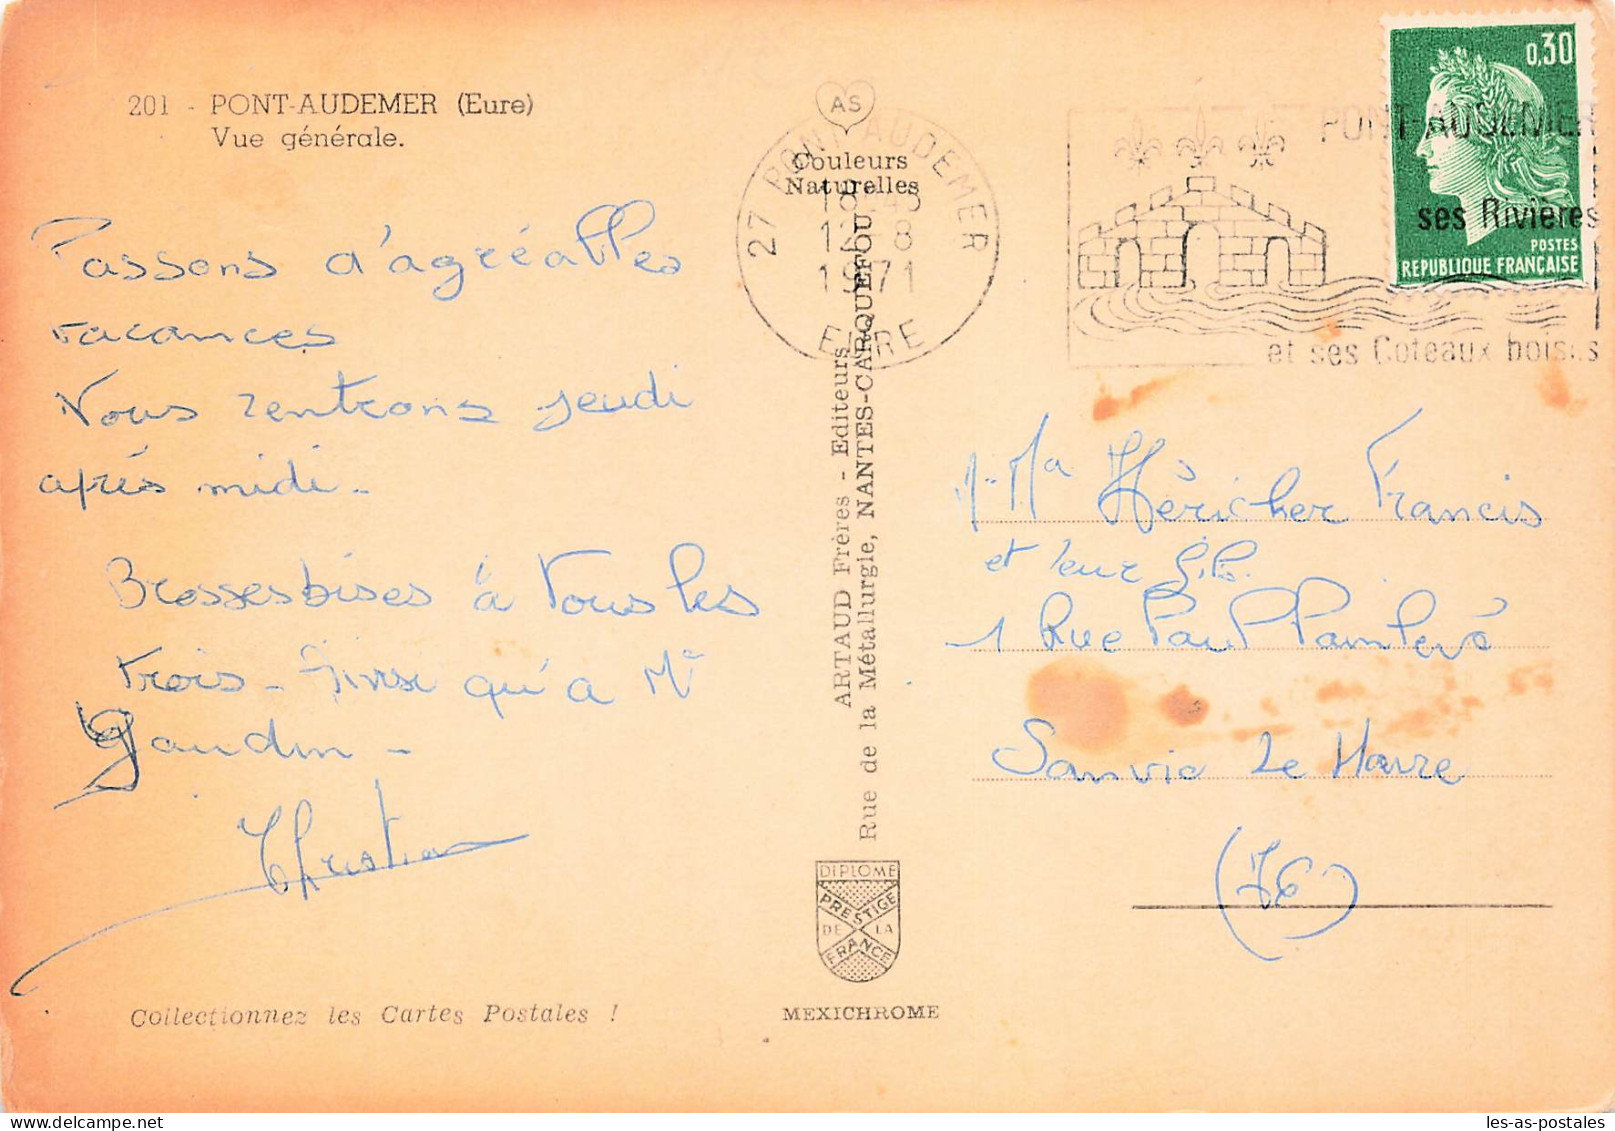 201 - PONT-AUDEMER (Eure)
Vue générale.
Passons d'agréables
vacances
Nous rentrons jeudi
après midi -
Brosses bises à Tous les
trois - Ainsi qu'a Me
Gaudin -
Christian
Collectionnez les Cartes Postales !
AS
Couleurs
Naturelles
27 PONT AUDEMER
18H45
12-8
1971
EURE
ARTAUD Frères - Editeurs
Rue de la Métallurgie, NANTES-CARQUEFOU
DIPLOME
PRESTIGE
DE LA
FRANCE
MEXICHROME
PONT-AUDEMER
ses Rivières
et ses Coteaux boisés
0,30
POSTES
REPUBLIQUE FRANÇAISE
M. Ma Héricher Francis
et leur fils.
1 Rue Paul Painlevé
Sanvic Le Havre
(76)
les-as-postales